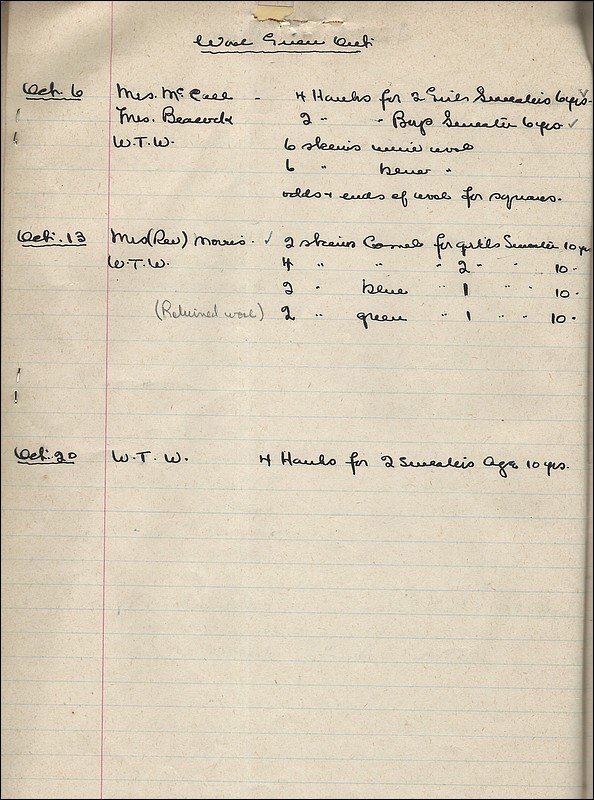 Wool Given Out
Oct. 6 Mrs. McCall - 4 Hanks for 2 Girls Sweaters 6 yrs. ✓
Mrs. Beacock 2 " " Boys Sweater 6 yrs ✓
W.T.W. 6 skeins wine wool
6 " blue "
odds + ends of wool for squares.
Oct. 13 Mrs (Rev) Morris. ✓ 2 skeins Camel for girls Sweater 10 yr
W.T.W. 4 " " " 2 " " 10 "
2 " blue " 1 " " 10 "
(Returned wool) 2 " green " 1 " " 10 "
Oct. 20 W.T.W. 4 Hanks for 2 Sweaters Age 10 yrs.